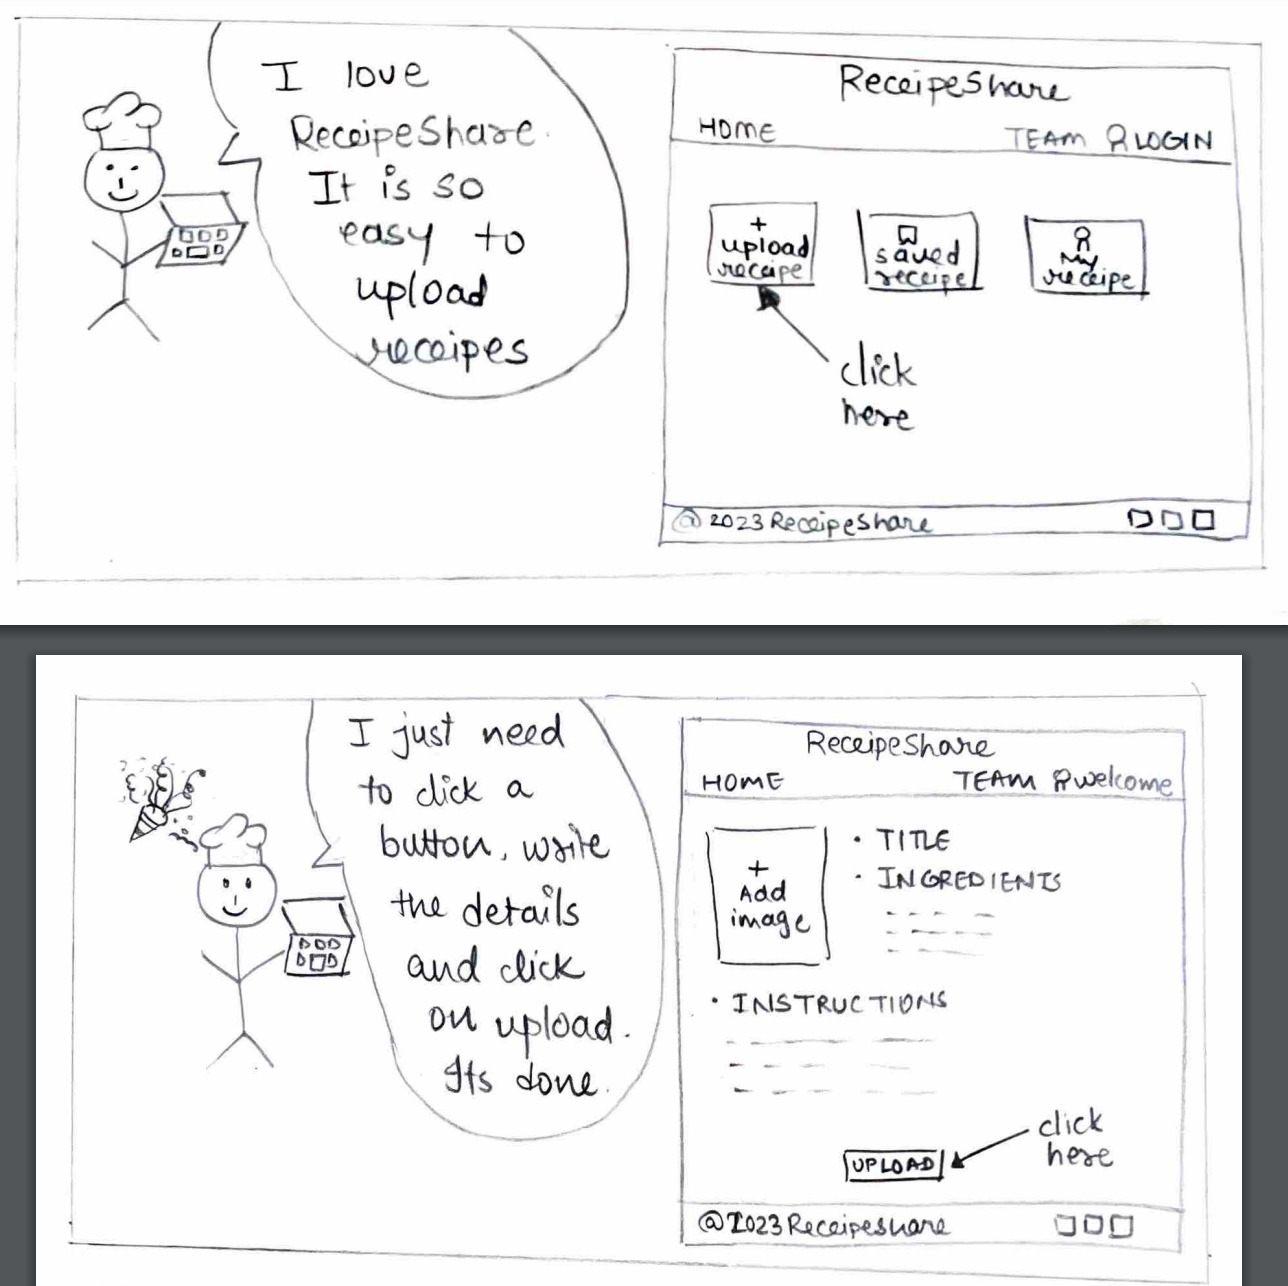 I love
ReceipeShare.
It is so
easy to
upload
receipes
ReceipeShare
HOME TEAM LOGIN
+
upload
receipe
saved
receipe
My
receipe
click
here
@ 2023 ReceipeShare
I just need
to click a
button, write
the details
and click
on upload.
Its done.
ReceipeShare
HOME TEAM welcome
+
Add
image
• TITLE
• INGREDIENTS
• INSTRUCTIONS
click
here
UPLOAD
@2023 Receipeshare